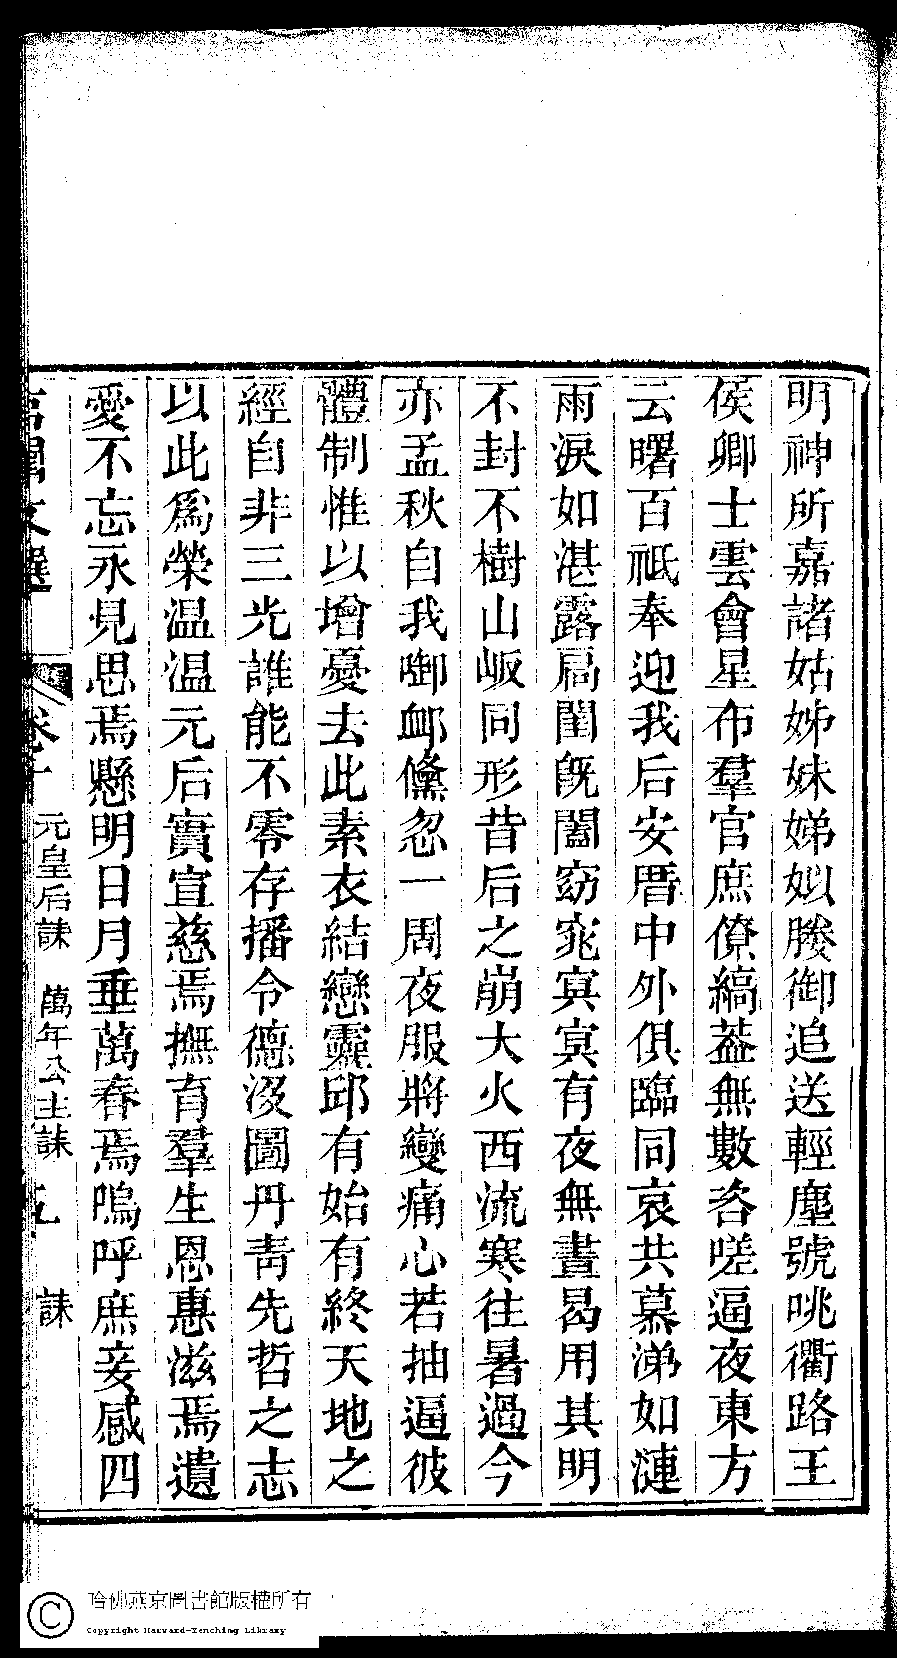 明神所嘉諸姑姊妹娣姒媵御追送輕塵號咷衢路王
侯卿士雲會星布羣官庶僚縞葢無數咨嗟逼夜東方
云曙百祗奉迎我后安厝中外俱臨同哀共慕涕如漣
雨淚如湛露扃闈旣闔窈窕寘寘有夜無晝曷用其明
不封不樹山岅同形昔后之崩大火西流寒往暑過今
亦孟秋自我啣衈儵忽一周夜服將變痛心若抽逼彼
體制惟以增憂去此素衣結戀靈邱有始有終天地之
經自非三光誰能不零存播令德沒圖丹青先哲之志
以此爲榮温温元后實宣慈焉撫育羣生恩惠滋焉遺
愛不忘永見思焉懸明日月垂萬春焉嗚呼庶妾感四
宮閨文選 卷十 元皇后誄 萬年公主誄 誄
哈佛燕京圖書館版權所有
Copyright Harvard-Yenching Library